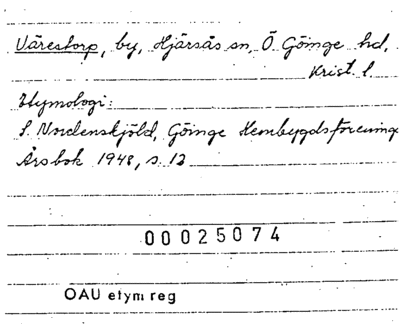 Värestorp, by, Hjärsås sn, Ö Göinge hd,
Krist. l.
Etymologi:
S. Nordenskjöld, Göinge Hembygdsförening
Årsbok 1948, s. 12
00025074
OAU etym reg